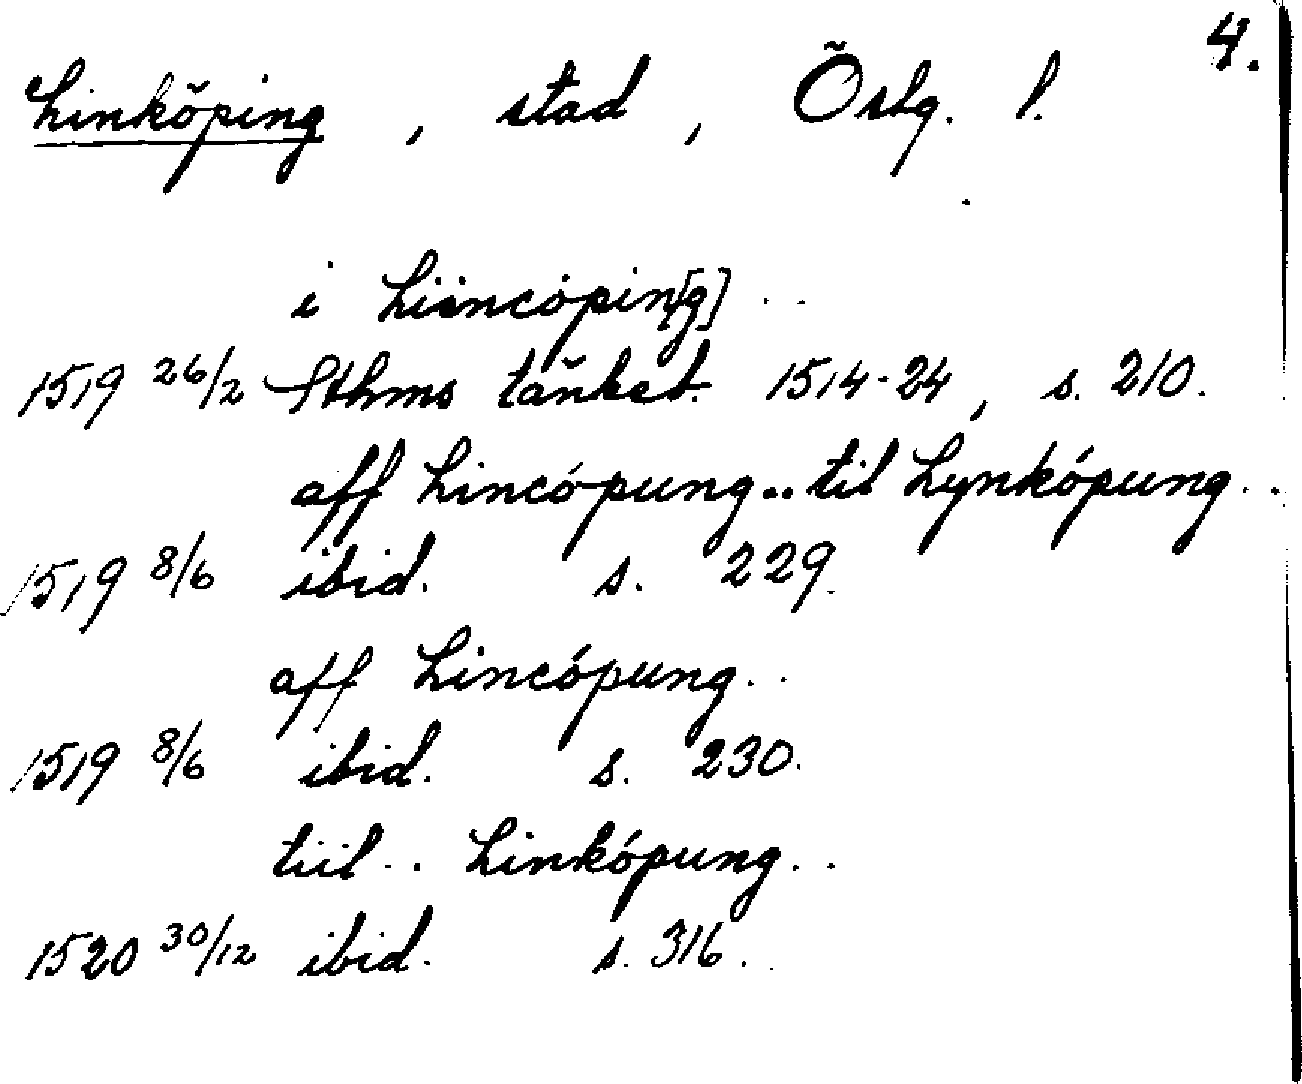 4.
Linköping, stad, Östg. l.
i Liincöpin[g] ..
1519 26/2 Sthms tänkeb. 1514-24, s. 210.
aff Lincópung.. til Lynkópung..
1519 8/6 ibid. s. 229.
aff Lincópung..
1519 8/6 ibid. s. 230.
tiil.. Linkópung..
1520 30/12 ibid. s. 316.